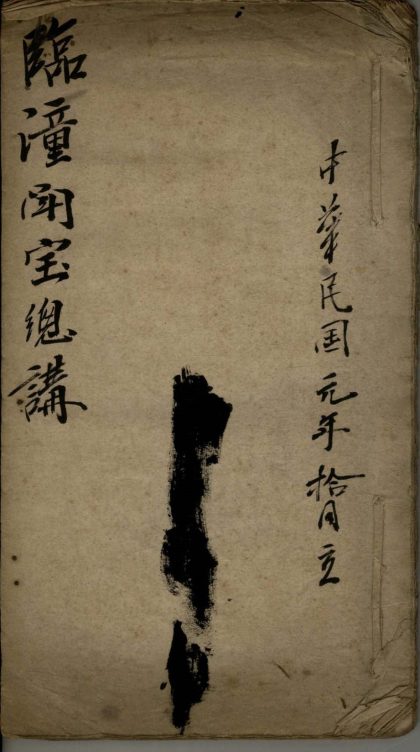 中華民国元年拾月立
臨潼閗宝總講